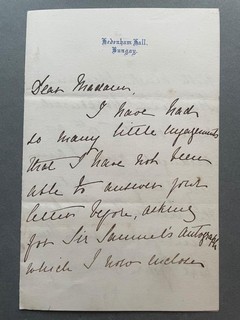 Hedenham Hall,
Bungay.
Dear Madam,
I have had
so many little engagements
that I have not been
able to answer your
letter before, asking
for Sir Samuel's autograph
which I now enclose